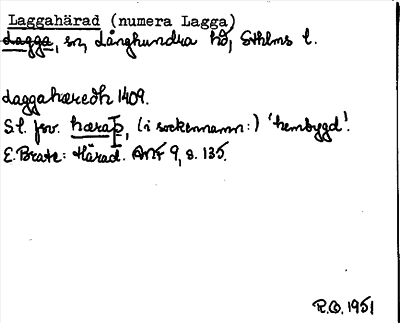 Laggahärad (numera Lagga)
Lagga, sn, Långhundra hd, Sthlms l.
Laggahæredh 1409.
S.l. fsv. hæraþ, (i sockennamn:) 'hembygd'.
E. Brate: Härad. ANF 9, s. 135.
R.O. 1951